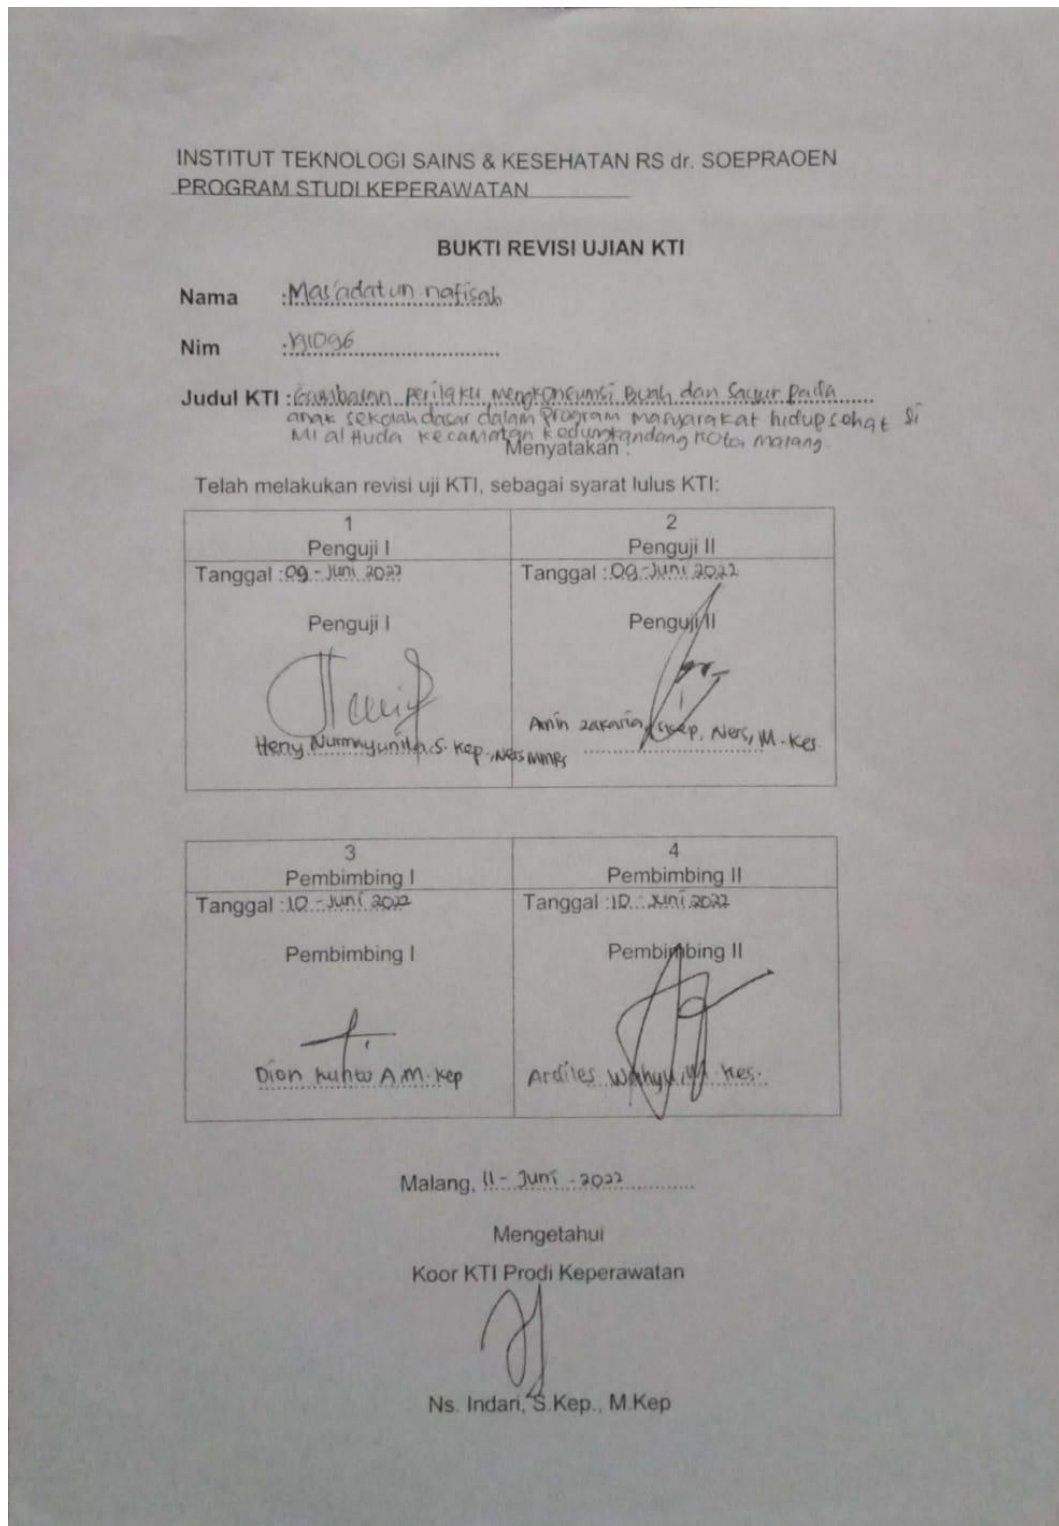 INSTITUT TEKNOLOGI SAINS & KESEHATAN RS dr. SOEPRAOEN
PROGRAM STUDI KEPERAWATAN
BUKTI REVISI UJIAN KTI
Nama : Mas'adatun nafisah
Nim :
Judul KTI : Gambaran perilaku mengkonsumsi Buah dan Sayur pada
anak sekolah dasar dalam Program masyarakat hidup sehat di
MI al Huda Kecamatan Kedungkandang Kota Malang.
Menyatakan :
Telah melakukan revisi uji KTI, sebagai syarat lulus KTI:
1 2
Penguji I Penguji II
Tanggal : 09 - Juni 2022 Tanggal : 09 - Juni 2022
Penguji I Penguji II
Heny Nurmayunita, S. Kep., Ners MMRS Amin Zakaria, S.Kep, Ners, M.Kes.
3 4
Pembimbing I Pembimbing II
Tanggal : 10 - Juni 2022 Tanggal : 10 - Juni 2022
Pembimbing I Pembimbing II
Dion A, M.Kep Ardiles Wahyu, M. Kes.
Malang, 11 - Juni - 2022
Mengetahui
Koor KTI Prodi Keperawatan
Ns. Indari, S.Kep., M.Kep